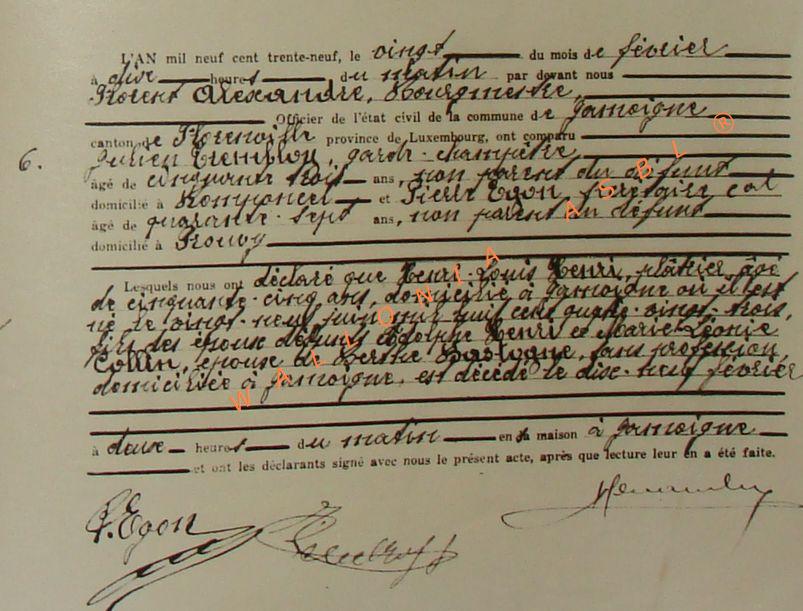 L'AN mil neuf cent trente-neuf, le vingt du mois de février
à dix heures du matin par devant nous
Florent Alexandre, Bourgmestre,
Officier de l'état civil de la commune de Jamoigne
canton de Florenville province de Luxembourg, ont comparu
6. Julien garde-champêtre
âgé de cinquante trois ans, non parent du défunt
domicilié à Romponcel et Pierre Egon, secrétaire cal
âgé de quarante-sept ans, non parent du défunt
domicilié à Prouvy
Lesquels nous ont déclaré que Henri-Louis Henri, plâtrier, âgé
de cinquante-cinq ans, domicilié à Jamoigne où il est
né le vingt-neuf juin mil huit cent quatre-vingt-trois,
fils des époux défunts Adolphe Henri et Marie-Léonie
Collin, époux de Berthe Bastogne, sans profession,
domiciliée à Jamoigne, est décédé le dix-neuf février
à deux heures du matin en sa maison à Jamoigne
et ont les déclarants signé avec nous le présent acte, après que lecture leur en a été faite.
P. Egon
WALLONIA ASBL ®